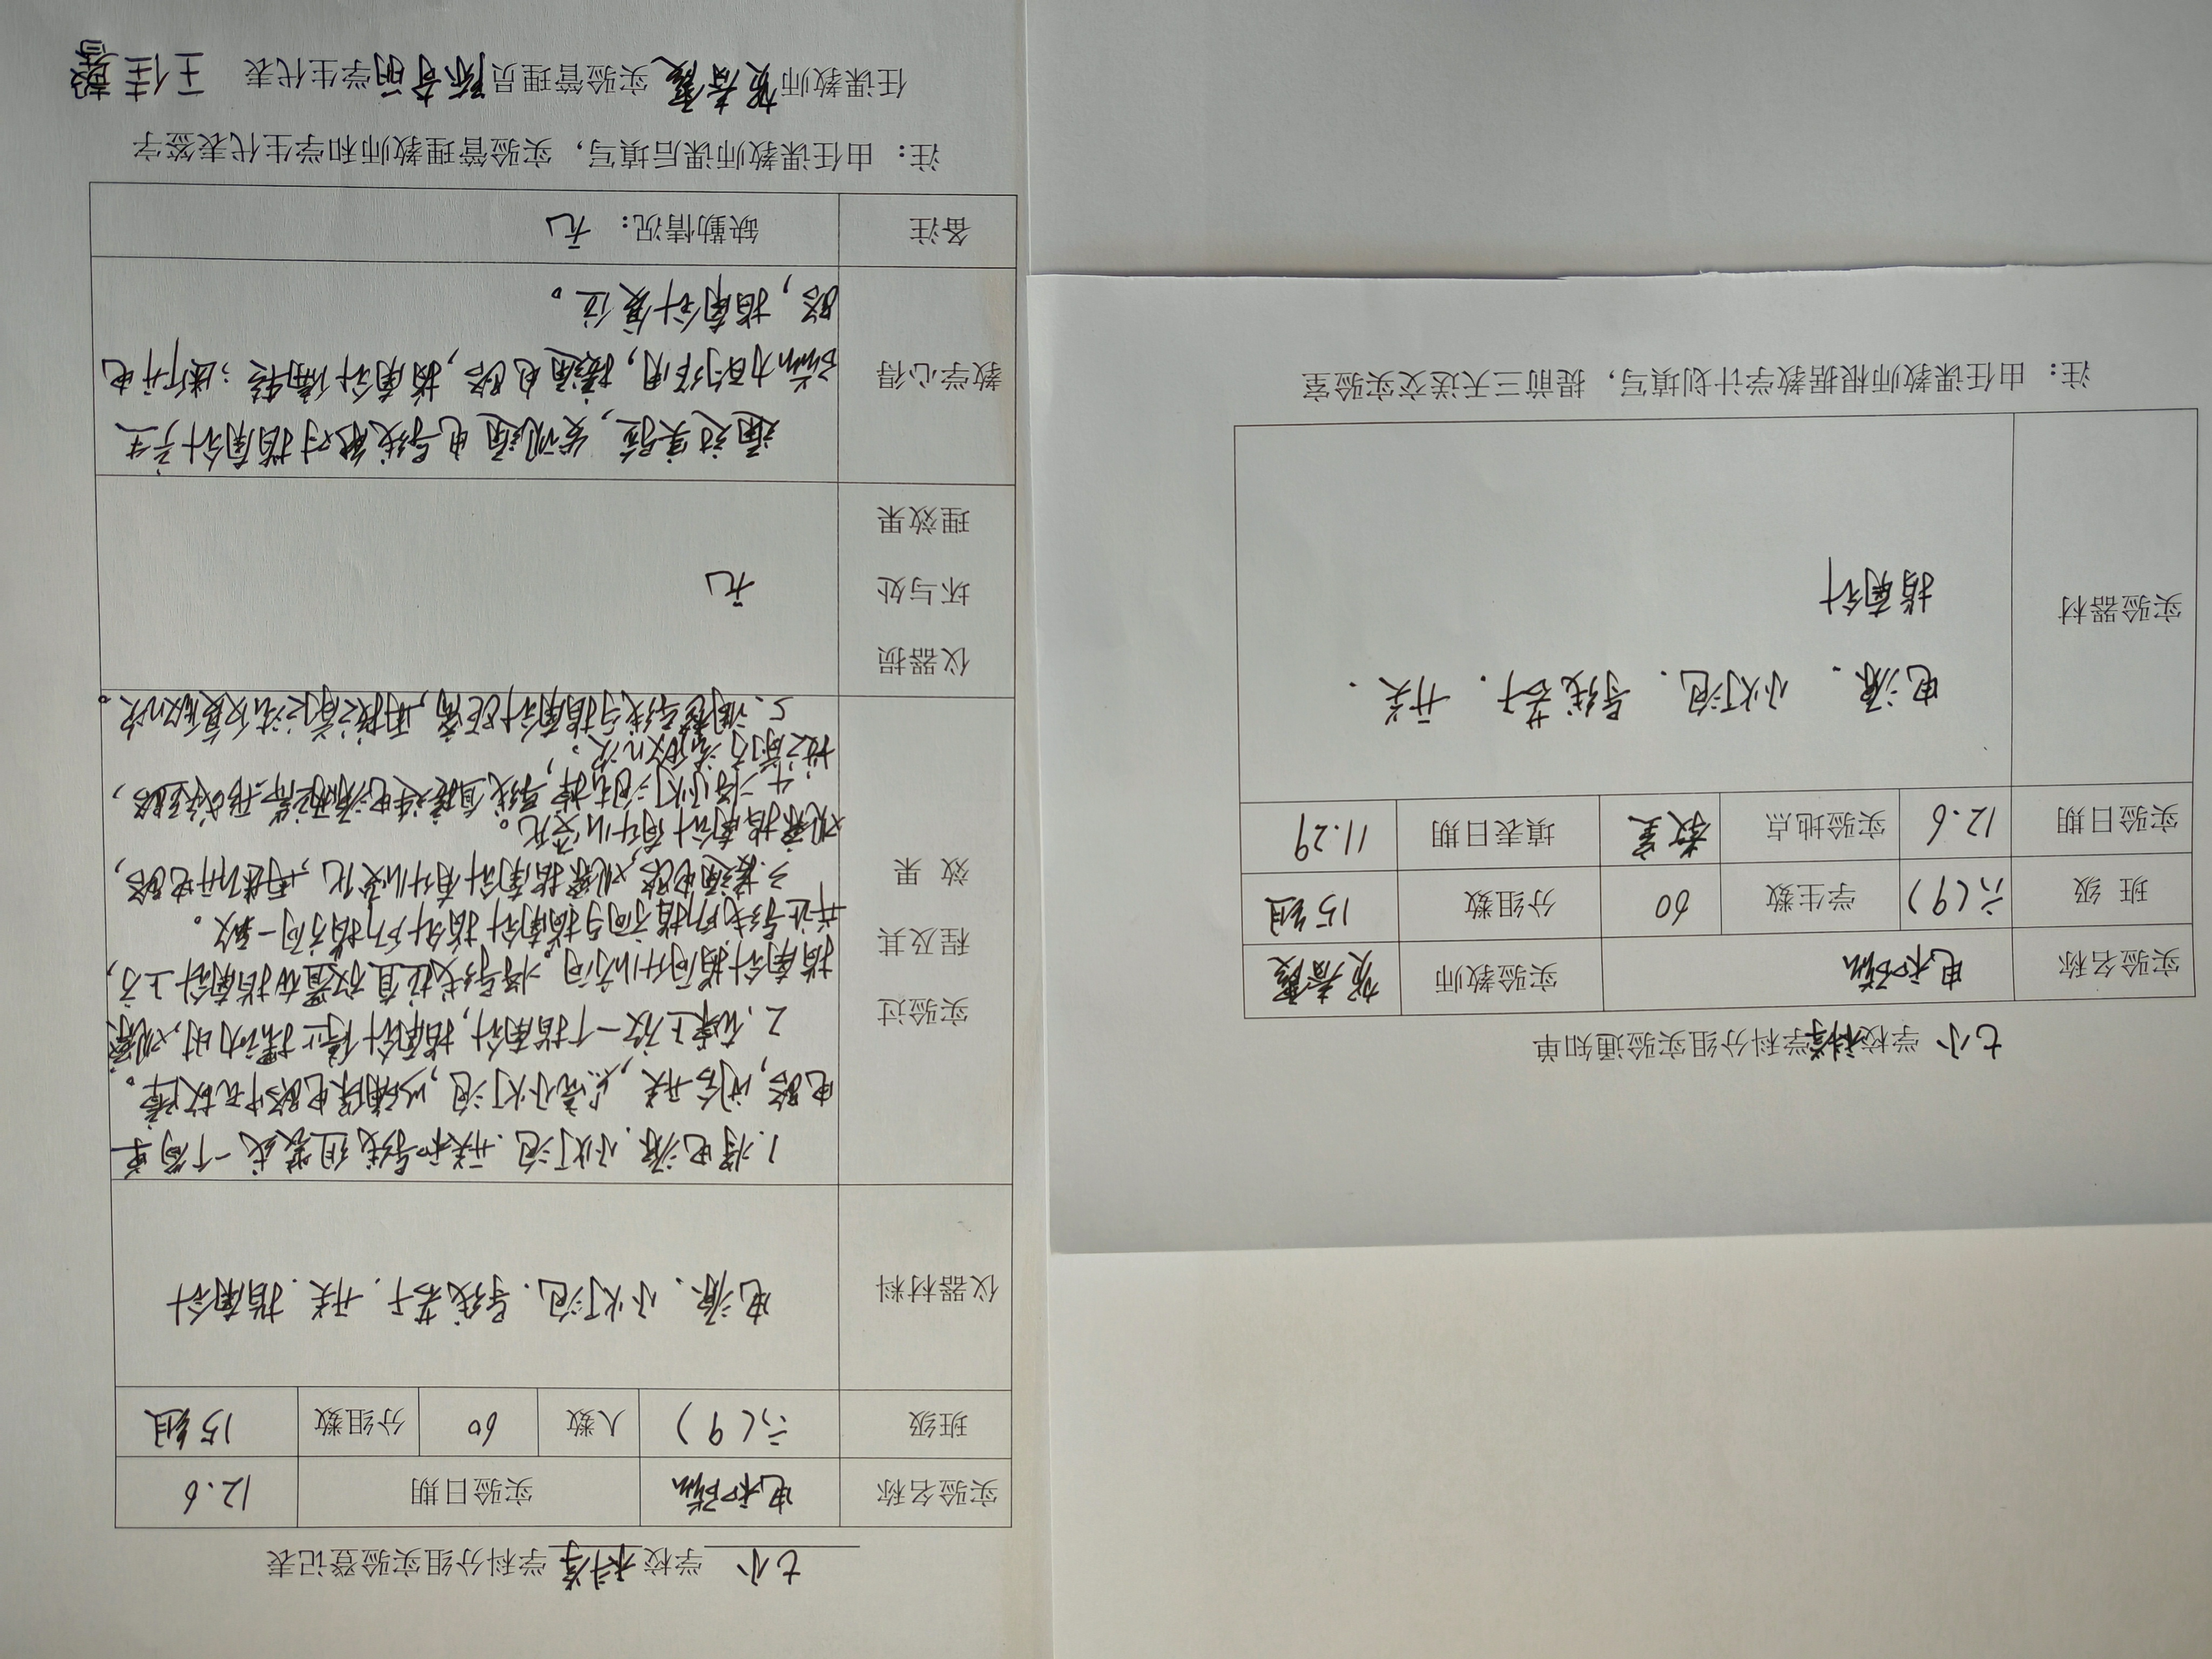 七小 学校科学学科分组实验通知单
实验名称 电和磁 实验教师 贺春霞
班 级 六(9) 学生数 60 分组数 15组
实验日期 12.6 实验地点 教室 填表日期 11.29
实验器材 电源. 小灯泡. 导线若干. 开关.
指南针
注: 由任课教师根据教学计划填写, 提前三天送交实验室
七小 学校 科学 学科分组实验登记表
实验名称 电和磁 实验日期 12.6
班级 六(9) 人数 60 分组数 15组
仪器材料 电源. 小灯泡. 导线若干. 开关. 指南针
实验过
程及其
效 果
1.将电源.小灯泡.开关和导线组装成一个简单
电路,闭合开关,点亮小灯泡,以确保电路中无故障。
2.在桌上放一个指南针,指南针停止摆动时,观察
指南针指向什么方向。将导线拉直放置在指南针上方,
并让导线所指方向与指南针指针所指方向一致。
3.接通电路,观察指南针有什么变化,再断开电路,
观察指南针有什么变化。
4.将小灯泡去掉,导线直接连电源两端,形成短路,
按之前方法做n次。
5.调整导线与指南针距离,再按之前方法反复做n次。
仪器损
坏与处
理效果
无
教学心得
通过实验,发现通电导线能对指南针产生
磁力的作用,接通电路,指南针偏转;断开电
路,指南针复位。
备注 缺勤情况: 无
注: 由任课教师课后填写, 实验管理教师和学生代表签字
任课教师 贺春霞 实验管理员 陈奇明 学生代表 王佳馨